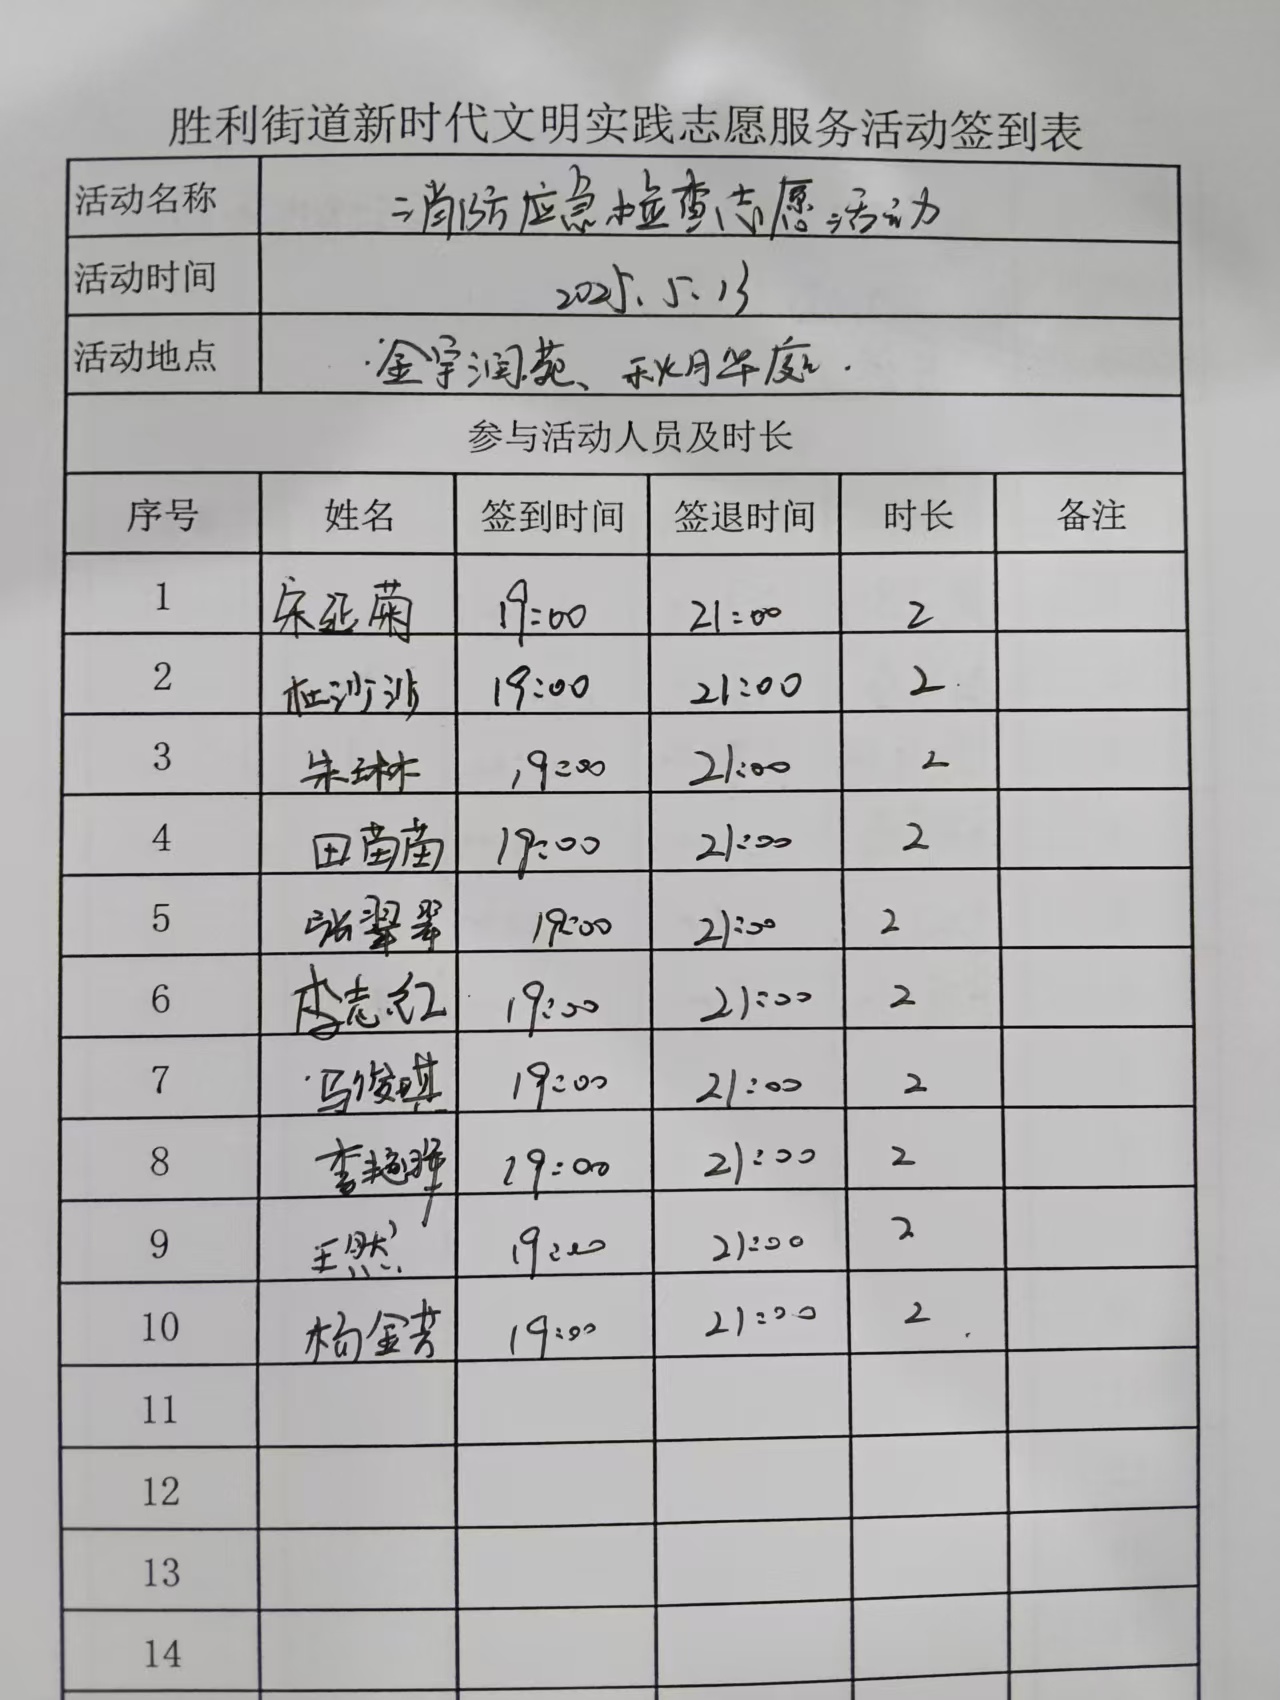 胜利街道新时代文明实践志愿服务活动签到表
活动名称 消防应急检查志愿活动
活动时间 2025.5.13
活动地点 金宇润苑、秋月华庭.
参与活动人员及时长
序号 姓名 签到时间 签退时间 时长 备注
1 宋延菊 19:00 21:00 2
2 杜沙沙 19:00 21:00 2
3 朱琳 19:00 21:00 2
4 田苗苗 19:00 21:00 2
5 张翠翠 19:00 21:00 2
6 李志红 19:00 21:00 2
7 马俊琪 19:00 21:00 2
8 19:00 21:00 2
9 王然 19:00 21:00 2
10 杨金芳 19:00 21:00 2
11
12
13
14